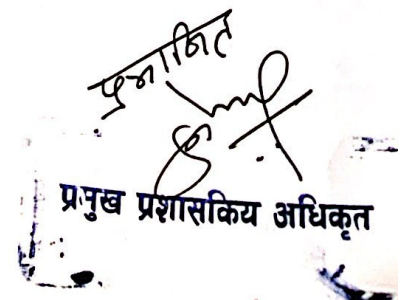 प्रमाणित
प्रमुख प्रशासकिय अधिकृत